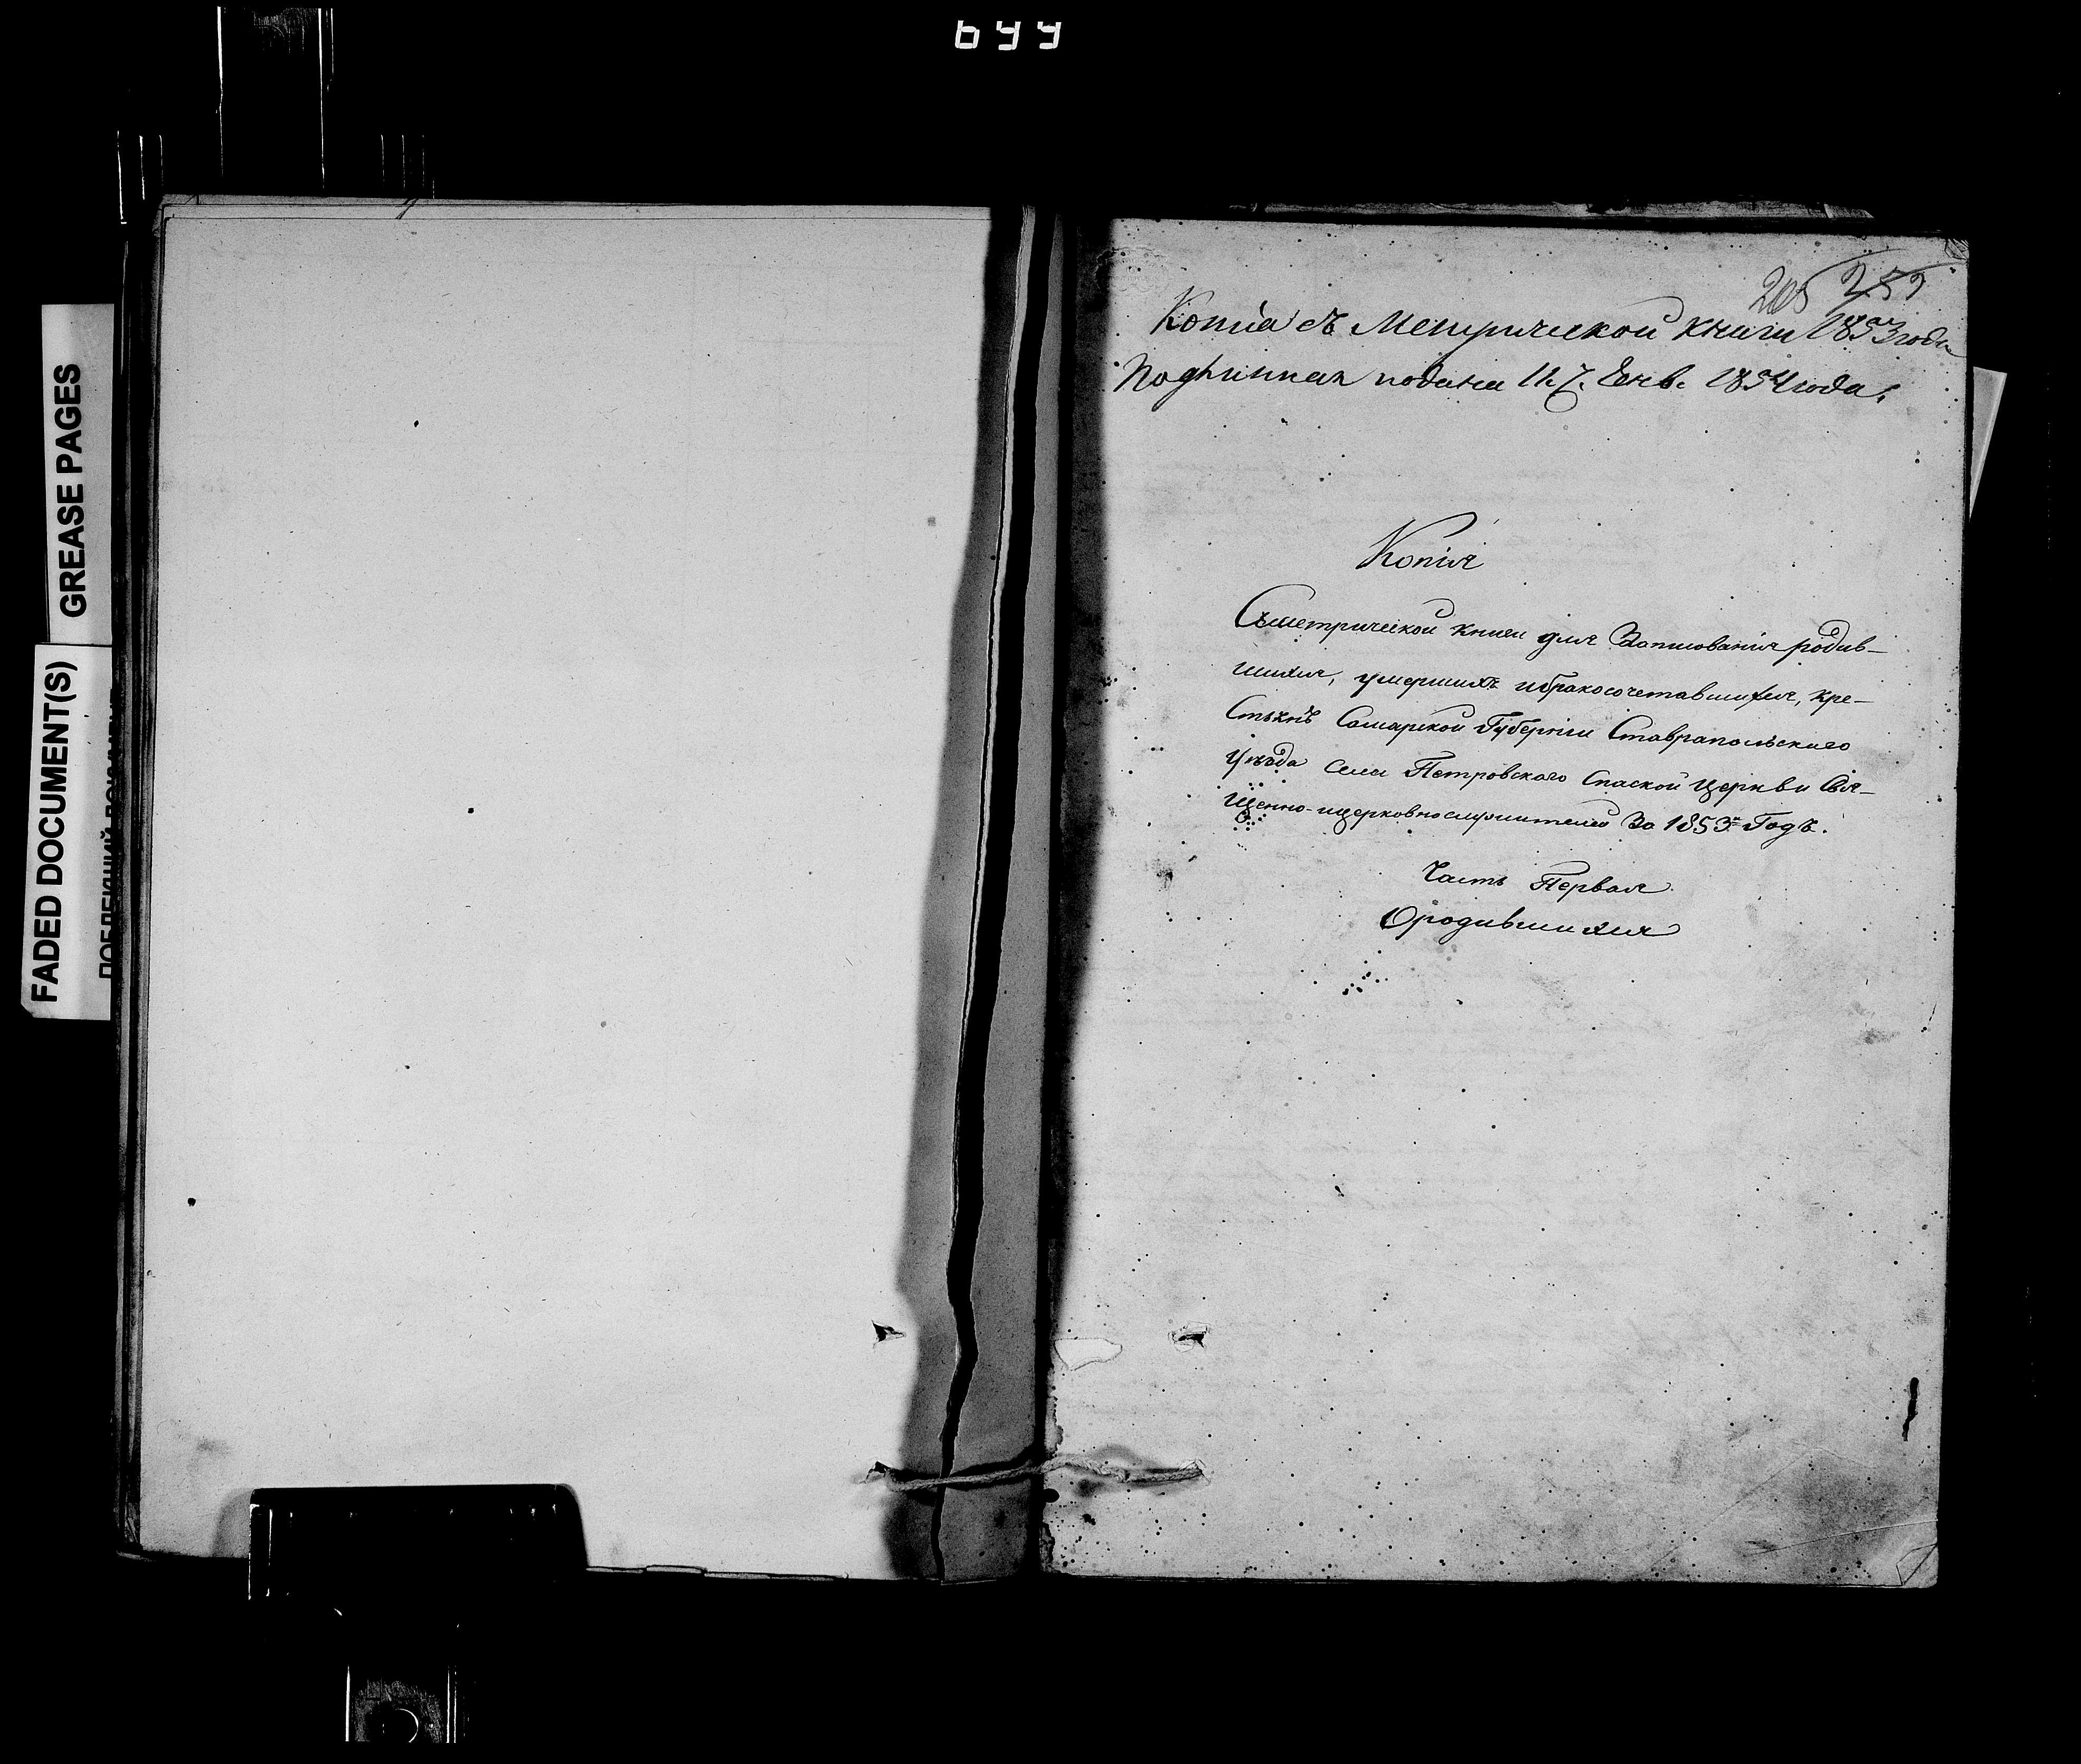 699
GREASE PAGES
FADED DOCUMENT(S)
205 252
Копiа съ Метрической книги 1853 года
Подлинная подана 11. Генв. 1854 года.
Копiя
Съ метрической книги для Записованiя родив-
шихся, умершихъ и бракосочетавшихся, кре-
стьянъ Самарской Губернiи Ставрапольскаго
уезда села Петровскаго Спаской церкви Свя-
щенно-ицерковнослужителей За 1853й Годъ.
Часть Первая
О родившихся